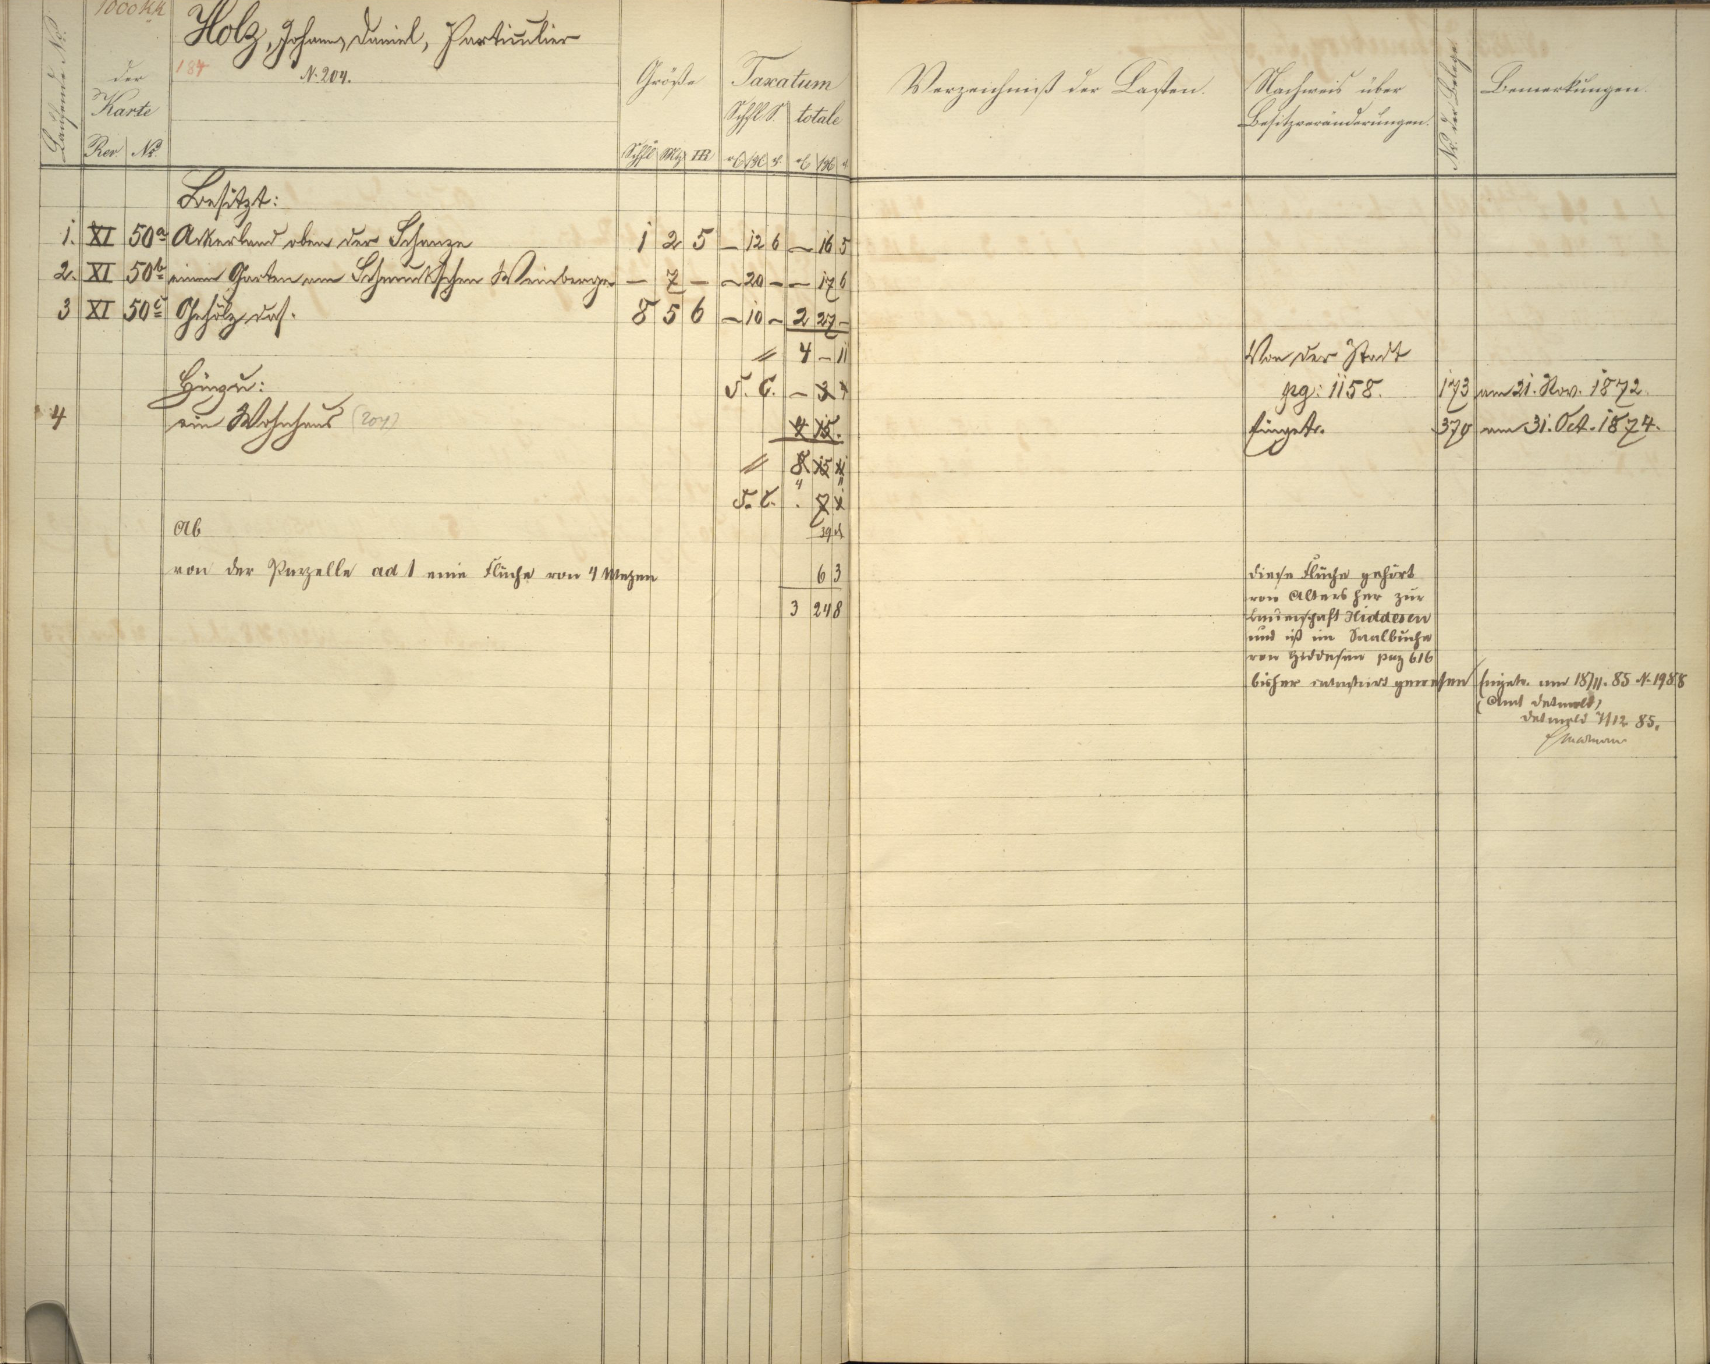 Holz, Johann, Daniel, Particulier
184
N. 204.
Laufende No.
der
Karte
Rev No.
Größe
Schfl Mtz □R
Taxatum
Schfl S. totale
Verzeichniß der Lasten.
Nachweis über
Besitzveränderungen.
No. der Belege
Bemerkungen.
Besitzt:
1. XI 50a Ackerland oben der Schanze 1 2 5 — 12 6 — 16 5
2. XI 50b einen Garten am Schmuckschen Weinberge — 7 — — 20 — — 17 6
3 XI 50c Gehölz das. 8 5 6 — 10 — 2 27 —
4 — 11
Von der Stadt
Hinzu: S. C. — 3
pg: 1158. 173 am 21. Nov. 1872.
4 ein Wohnhaus (204) 4 15.
Eingetr. 370 am 31. Oct. 1874.
8 15
S. C. . 7
Ab
von der Parzelle ad 1 eine Fläche von 4 Metzen 6 3
3 24 8
diese Fläche gehört
von Alters her zur
Bauerschaft Hiddesen
und ist im Saalbuche
von Hiddesen pag 616
bisher catastrirt gewesen
Eingetr. am 18/11. 85 N. 1988
(Amt Detmold)
Detmold 7/12 85.